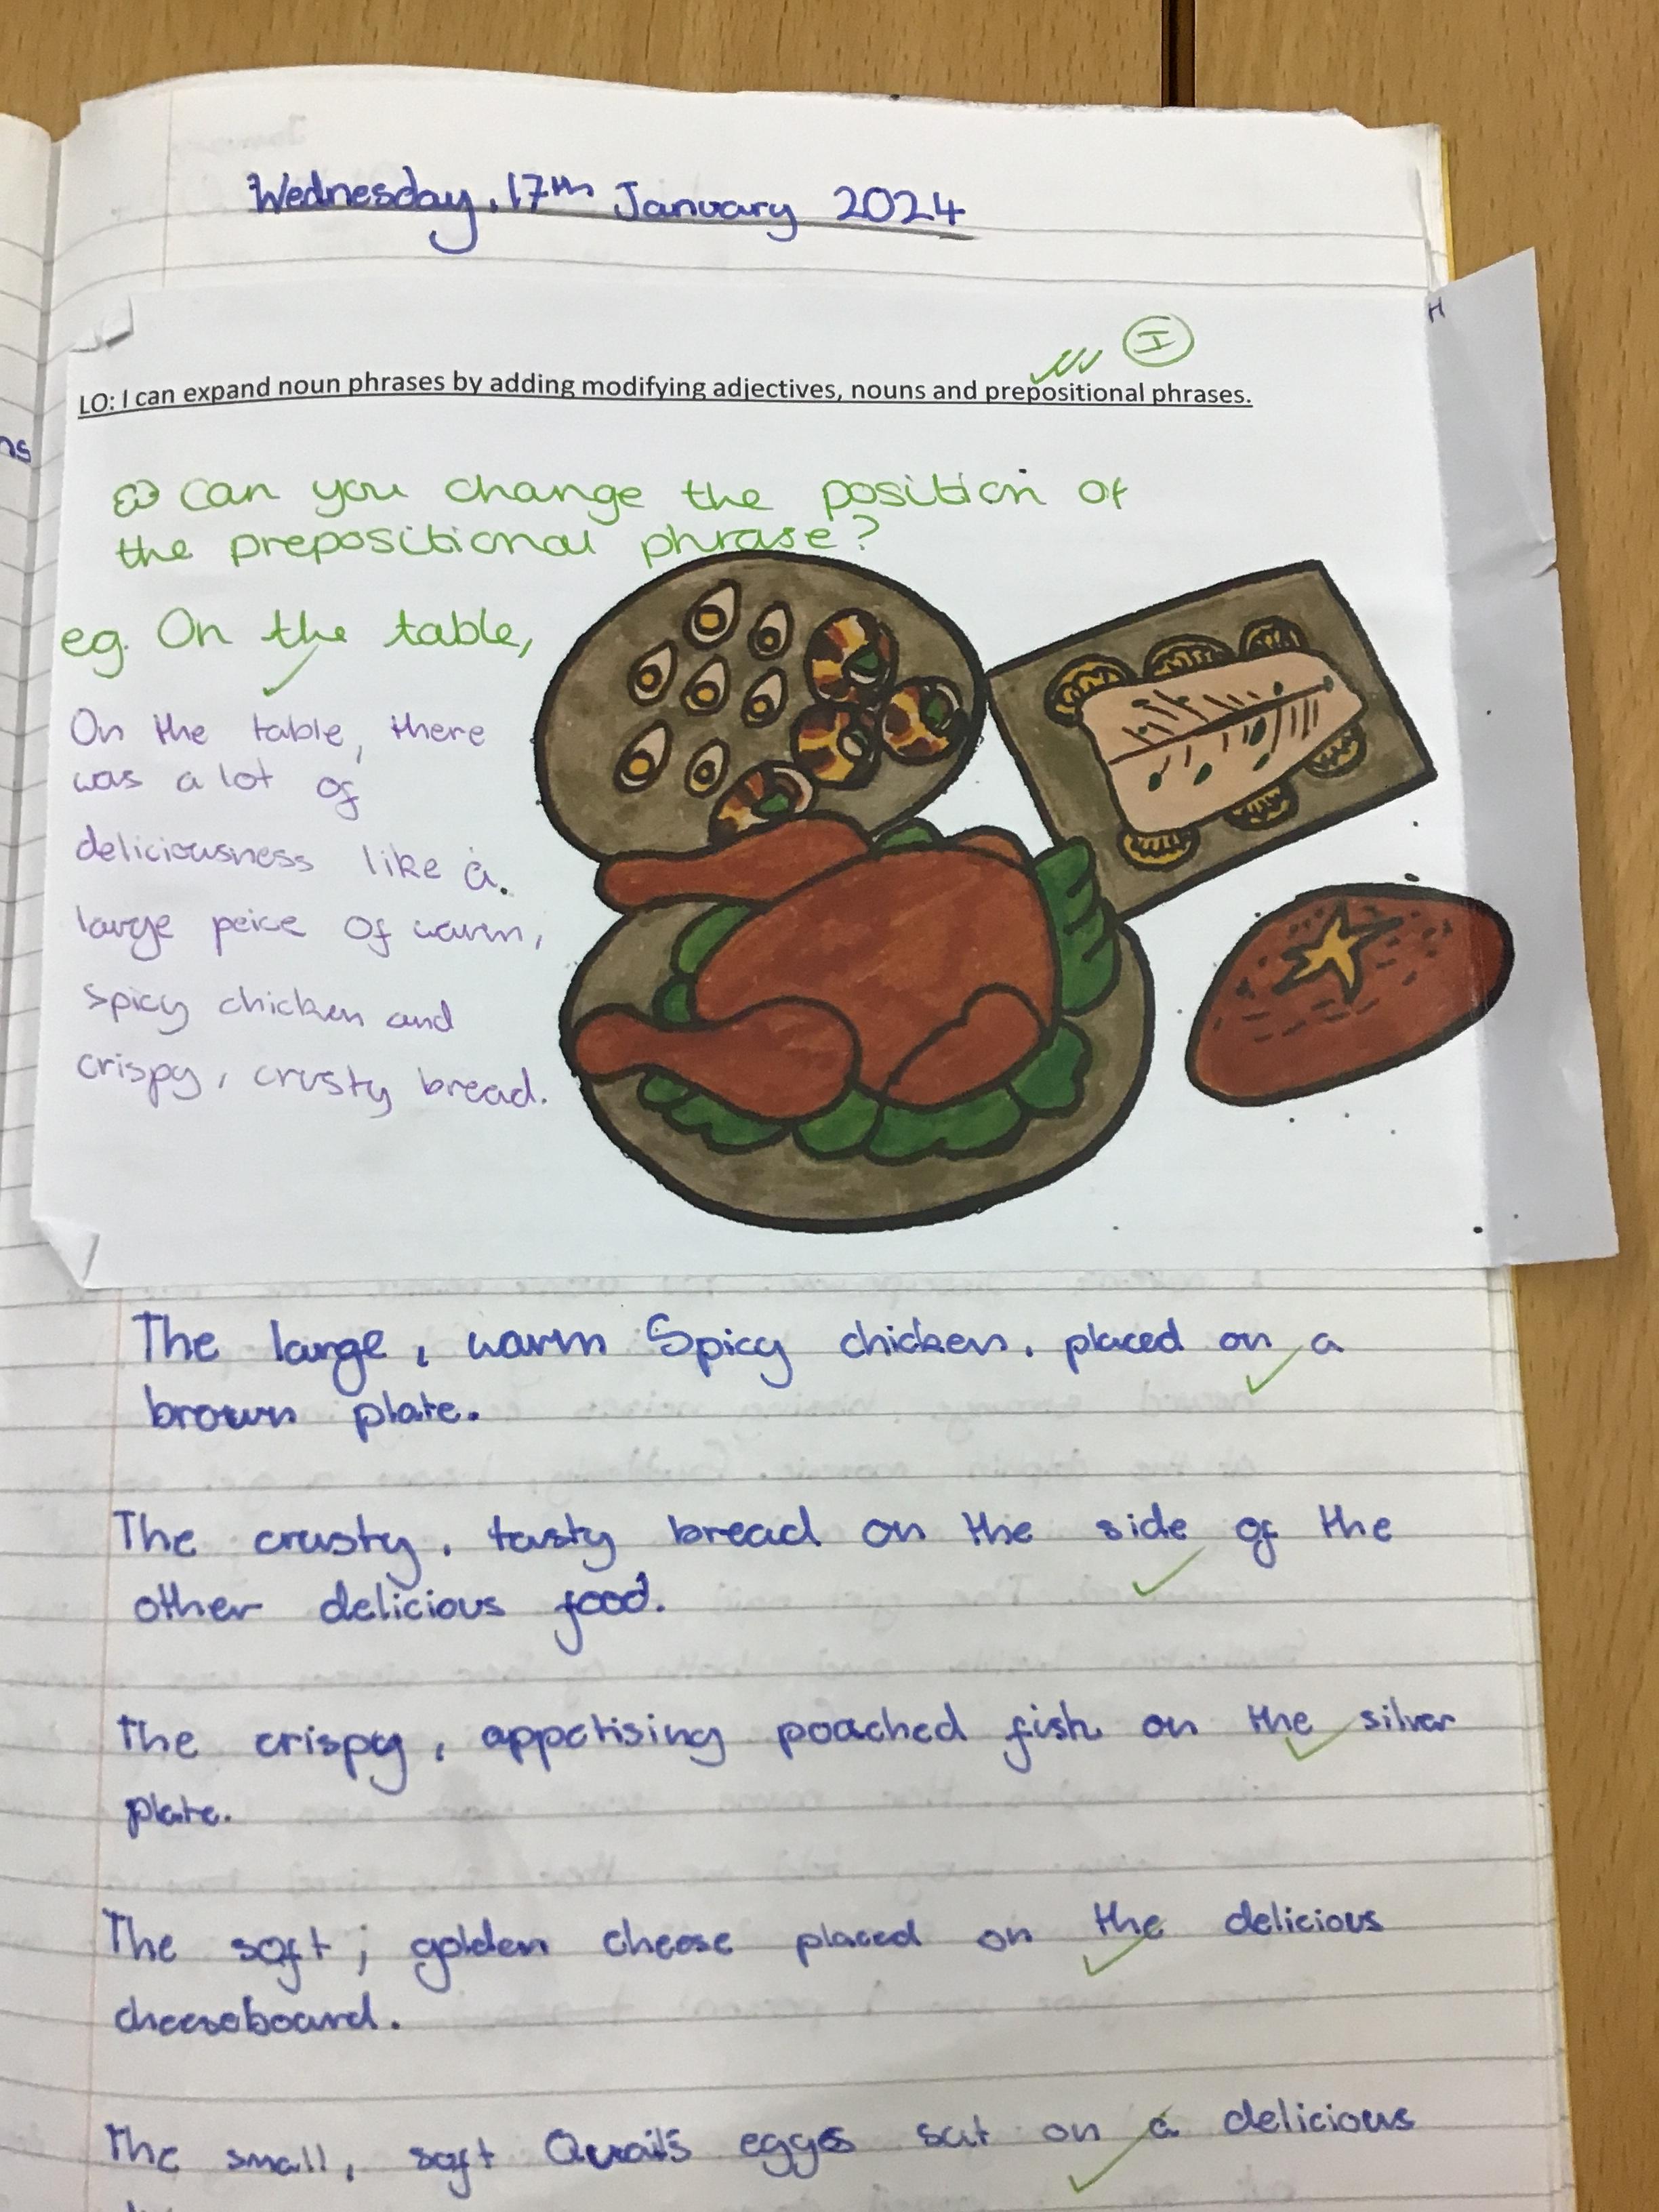 Wednesday, 17th January 2024
I
LO: I can expand noun phrases by adding modifying adjectives, nouns and prepositional phrases.
Can you change the position of
the prepositional phrase?
eg. On the table,
On the table, there
was a lot of
deliciousness like a
large peice of warm,
spicy chicken and
crispy, crusty bread.
The large, warm Spicy chicken, placed on a
brown plate.
The crusty, tasty bread on the side of the
other delicious food.
The crispy, appetising poached fish on the silver
plate.
The soft, golden cheese placed on the delicious
cheeseboard.
The small, soft Quails eggs sat on a delicious